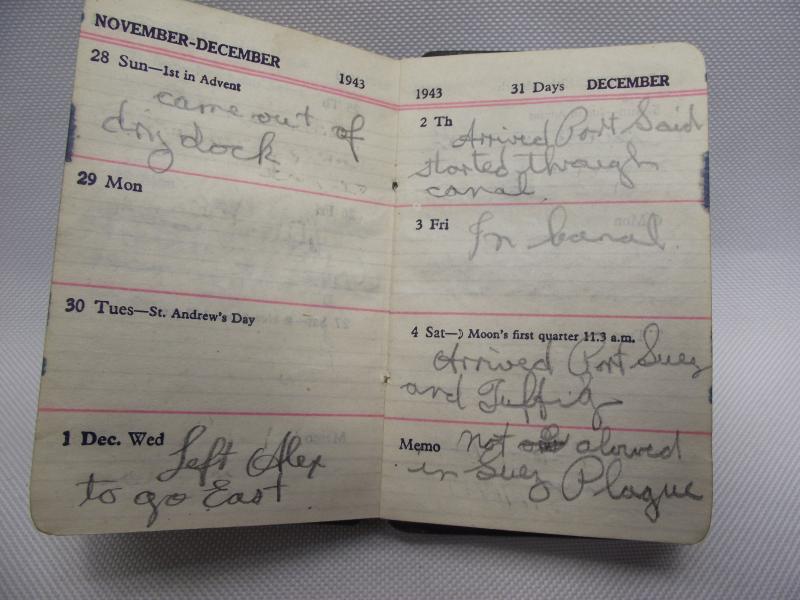 NOVEMBER-DECEMBER
1943
28 Sun—1st in Advent
came out of
dry dock
29 Mon
30 Tues—St. Andrew's Day
1 Dec. Wed Left Alex
to go East
1943 31 Days DECEMBER
2 Th Arrived Port Said
started through
canal.
3 Fri In canal.
4 Sat—☽ Moon's first quarter 11.3 a.m.
Arrived Port Suez
and Tuffiq
Memo not alowed
in Suez Plague